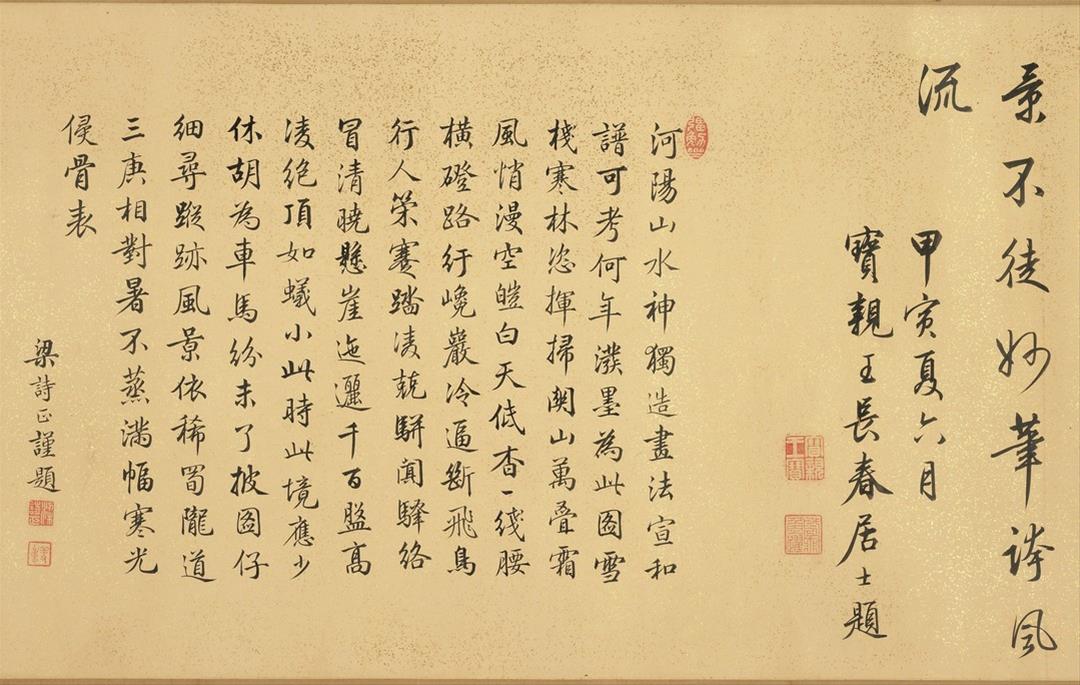 景不徒妙筆誇風
流
甲寅夏六月
寶親王長春居士題
寶親王寶
河陽山水神獨造畫法宣和
譜可考何年潑墨為此圖雪
棧寒林恣揮掃關山萬疊霜
風悄漫空皚白天低杳一綫腰
橫磴路行巉巖冷逼斷飛鳥
行人策蹇踏凌兢駢闐驛絡
冒清曉懸崖迤邐千百盤高
凌絕頂如蟻小此時此境應少
休胡為車馬紛未了披圖仔
細尋蹤跡風景依稀蜀隴道
三庚相對暑不蒸滿幅寒光
侵骨表
梁詩正謹題